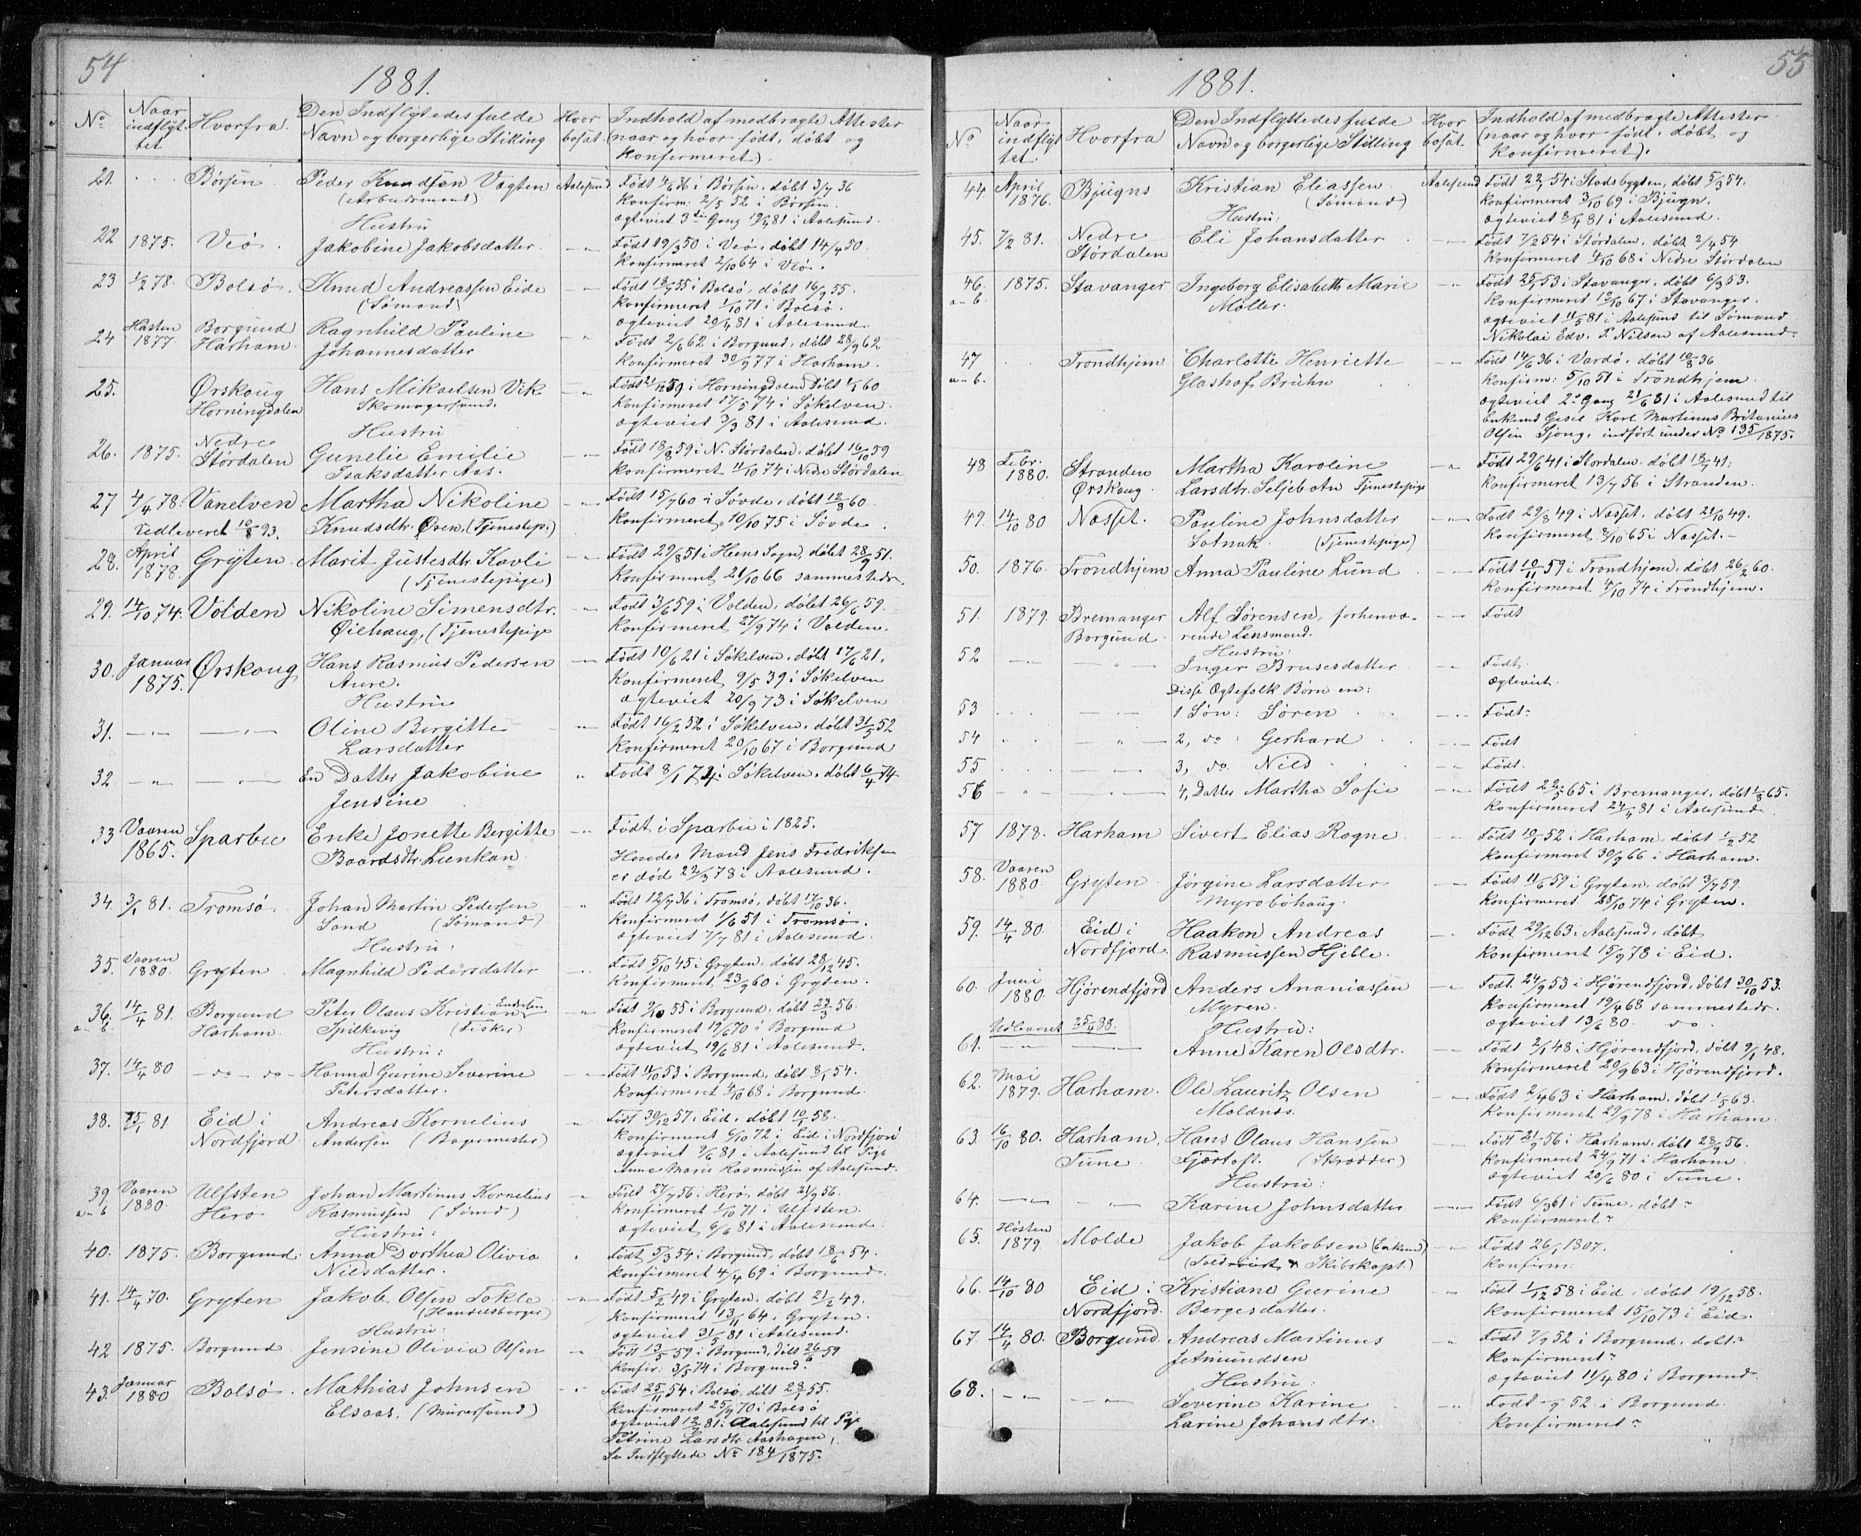 54
1881.
No
Naar indflyttet
Hvorfra.
Den Indflyttedes fulde Navn og borgerlige Stilling
Hvor bosat.
Indhold af medbragte Attester (naar og hvor født, døbt og Konfirmeret).
21. Børsen. Peder Knudsen Vagten Aalesund Født 4/6 36 i Børsen, døbt 3/7 36
(Arbeidsmand) Konfirm: 2/5 52 i Børsen.
Hustru ægteviet 3die Gang 81 i Aalesund.
22 1875. Veø. Jakobine Jakobsdatter. Født 19/3 50 i Veø, døbt 14/4 50.
Konfirmeret 2/10 64 i Veø.
23 1/2 78. Bolsø. Knud Andreassen Eide Født 55 i Bolsø. døbt 16/9 55.
(Sømand) Konfirmeret 1/10 71 i Bolsø.
ægteviet 20/4 81 i Aalesund.
24 Høsten 1877 Borgund Ragnhild Pauline Født 2/6 62 i Borgund, døbt 28/9 62
Harham. Johannesdatter Konfirmeret 30/9 77 i Harham.
25. Ørskoug Hans Mikaelsen Vik Født 21/12 59 i Horningdalen døbt 1/1 60
Horningdalen Skomagersvend. Konfirmeret 17/5 74 i Søkelven.
Hustru ægteviet 3/3 81 i Aalesund.
26. 1875. Nedre Størdalen Gunelie Emilie Født 18/8 59 i N. Størdalen, døbt 16/10 59
Isaksdatter Aas. Konfirmeret 11/10 74 i Nedre Størdalen
27 4/4 78. Vanelven Martha Nikoline Født 15/7 60 i Søvde, døbt 12/8 60.
Udleveret 10/8 93. Knudsdtr. Øven, (Tjenestepi.) Konfirmeret 10/10 75 i Søvde.
28. April 1878. Gryten. Marit Justesdtr. Kavli Født 29/8 51 i Heens Sogn, døbt 28/9 51.
(Tjenestepige) Konfirmeret 21/10 66 sammesteds.
29. 14/10 74. Volden Nikoline Simensdtr. Født 3/6 59 i Volden, døbt 26/6 59.
Øiehaug, (Tjenestepige Konfirmeret 27/9 74 i Volden.
30. Januar 1875. Ørskoug Hans Rasmus Pedersen Født 10/6 21 i Søkelven. døbt 17/6 21,
Aure. Konfirmeret 9/5 39 i Søkelven
Hustru ægteviet 20/9 73 i Søkelven
31. Oline Bergitte Født 16/2 52 i Søkelven, døbt 31/5 52
Larsdatter Konfirmeret 20/10 67 i Borgund
32 En Datter Jakobine Født 8/1 74 i Søkelven, døbt 6/4 74.
Jensine
33 Vaaren 1865. Sparbu Enke Jonette Bergitte Født i Sparbu i 1825.
Baardsdtr. Lienkan Hendes Mand Jens Fredriksen
er død 22/3 78 i Aalesund.
34 3/1 81. Tromsø. Johan Martin Pedersen Født 12/7 36 i Tromsø, døbt 17/10 36.
Sand (Sømand) Konfirmeret 1/6 51 i Tromsø.
Hustru: ægteviet 7/7 81 i Aalesund.
35. Vaaren 1880. Gryten Magnhild Pedersdatter Født 5/10 45 i Gryten, døbt 28/12 45.
Konfirmeret. 23/9 60 i Gryten.
36. a-b 14/4 81. Borgund Peter Olaus Kristian Endresen Født 9/10 55 i Borgund, døbt 24/3 56.
Harham. Spilkevig (Fisker) Konfirmeret 19/6 70 i Borgund
Hustru: ægteviet 19/6 81 i Aalesund.
37. 14/4 80 -do- -do- Hanna Gurine Severine Født 11/10 53 i Borgund, døbt 8/1 54.
Petersdatter. Konfirmeret 4/10 68 i Borgund
38. 15/1 81 Eid i Andreas Kornelius Født 30/12 57 i Eid, døbt 10/1 58.
Nordfjord Andersen (Bagermester) Konfirmeret 6/10 72 i Eid i Nordfjord
ægteviet 9/6 81 i Aalesund til Pige
Anne Marie Rasmussen af Aalesund.
39. a-b Vaaren 1880. Ulfsten Johan Martinus Kornelius Født 27/7 56 i Herø, døbt 21/9 56.
Herø Rasmussen (Sømd) Konfirmeret 1/10 71 i Ulfsten
Hustru: ægteviet 6/6 81 i Aalesund.
40. 1875. Borgund. Anna Dorthea Olivia Født 5/3 54 i Borgund, døbt 18/6 54.
Nilsdatter. Konfirmeret 4/4 69 i Borgund.
41. 14/4 70. Gryten Jakob Olsen Tokle Født 5/2 49 i Gryten, døbt 21/2 49.
(Handelsborger) Konfirmeret 13/11 64 i Gryten.
Hustru: ægteviet 31/5 81 i Aalesund.
42 1875. Borgund Jensine Olivia Olsen Født 13/5 59 i Borgund, døbt 26/6 59
Konfir: 3/5 74 i Borgund.
43. Januar 1880 Bolsø. Mathias Johnsen Født 25/11 54 i Bolsø. døbt 28/5 55.
Elsaas. (Murersvend) Konfirmeret 25/9 70 i Bolsø
ægteviet 12/8 81 i Aalesund til Pige
Petrine Larsdtr Aashagen,
Se Indflyttede No 184/1875.
55
1881.
No
Naar indflyttet.
Hvorfra
Den Indflyttedes fulde Navn og borgerlige Stilling
Hvor bosat.
Indhold af medbragte Attester (naar og hvor født, døbt og Konfirmeret).
44. April 1876. Bjugns Kristian Eliassen Aalesund Født 22/1 54 i Stadsbygden, døbt 5/3 54.
(Sømand) Konfirmeret 3/10 69 i Bjugn.
Hustru: ægteviet 81 i Aalesund.
45. 7/2 81. Nedre Størdalen Eli Johansdatter Født 7/2 54 i Størdalen, døbt 2/4 54
Konfirmeret 4/10 68 i Nedre Størdalen
46. a-b. 1875. Stavanger Ingeborg Elisabeth Marie Født 25/1 53 i Stavanger, døbt 6/3 53.
Møller. Konfirmeret 10/10 67 i Stavanger.
ægteviet 11/5 81 i Aalesund til Sømand
Nikolai Edv. P. Nilsen af Aalesund.
47 a-b. Trondhjem Charlotte Henriette Født 14/6 36 i Vardø, døbt 10/8 36
Glashof Bruhn Konfirm: 5/10 51 i Trondhjem.
ægteviet 2den Gang 21/6 81 i Aalesund til
Enkmd Gisle Karl Martinus Britanius
Olsen Sjong, indført under No 135/1875.
48 Febr. 1880. Stranden Martha Karoline Født 29/6 41 i Stordalen. døbt 18/7 41.
Ørskoug. Larsdtr. Seljeb An Tjenestepige Konfirmeret 13/7 56 i Stranden.
49. 14/10 80 Næsset. Pauline Johnsdatter Født 29/8 49 i Næsset, døbt 21/10 49.
Sotnak. (Tjenestepige) Konfirmeret 8/10 65 i Næsset.
50. 1876. Trondhjem Anna Pauline Lund Født 10/11 59 i Trondhjem, døbt 26/2 60.
Konfirmeret 4/10 74 i Trondhjem.
51. 1879. Bremanger Alf Sørensen, forhenvæ- Født
Borgund. rende Lensmand.
52 Hustru: Inger Brusesdatter Født.
ægteviet.
Disse Ægtefolk Børn ere:
53 1 Søn: Søren Født.
54 2, do: Gerhard Født
55 3, do. Nils Født.
56 4, Datter Martha Sofie Født 22/5 65 i Bremanger, døbt 1/8 65.
Konfirmeret 24/4 81 i Aalesund.
57 1878. Harham Sivert Elias Rogne Født 10/1 52 i Harham, døbt 1/2 52
Konfirmeret 30/9 66 i Harham.
58. Vaaren 1880 Gryten Jørgine Larsdatter Født 11/6 59 i Gryten, døbt 3/7 59.
Myrobøhaug. Konfirmeret 25/10 74 i Gryten.
59. 14/4 80 Eid i Haakon Andreas Født 29/12 63 i Aalesund, døbt
Nordfjord. Rasmussen Hjelle. Konfirmeret 15/9 78 i Eid.
60. Juni 1880. Hjørendfjord Anders Ananiassen Født. 24/9 53 i Hjørendfjord, døbt 30/10 53.
Myren. Konfirmeret 19/4 68 sammesteds.
Udleveret 25/4 88. Hustru: ægteviet 13/6 80. do.
61. Anne Karen Olsdtr. Født 2/1 48 i Hjørendfjord, døbt 9/1 48.
Konfirmeret 20/9 63 i Hjørendfjord.
62. Mai 1879. Harham. Ole Lauritz Olsen Født 2/4 63 i Harham, døbt 1/5 63.
Moldnæs. Konfirmeret 29/9 78 i Harham.
63. 16/10 80. Harham. Hans Olaus Hanssen Født 21/9 56 i Harham, døbt 28/9 56.
Tune. Fjørtoft. (Skrædder) Konfirmeret 24/9 71 i Harham
Hustru: ægteviet 20/6 80 i Tune.
64. Karine Johnsdatter Født 6/3 61 i Tune, døbt
Konfirmeret
65. Høsten 1879. Molde Jakob Jakobsen (Enkmd) Født 26/1 1807.
Skibskapt.) Konfirm:
66. 14/10 80 Eid i Kristiane Gurine Født 1/12 58 i Eid, døbt 19/12 58.
Nordfjord. Bergesdatter. Konfirmeret 15/10 73 i Eid.
67. 14/4 80. Borgund. Andreas Martinus Født 7/9 52 i Borgund, døbt
Jetmundsen Konfirmeret
Hustru: ægteviet 11/4 80 i Borgund.
68. Severine Karine Født 52 i Borgund.
Larine Johansdtr. Konfirmeret